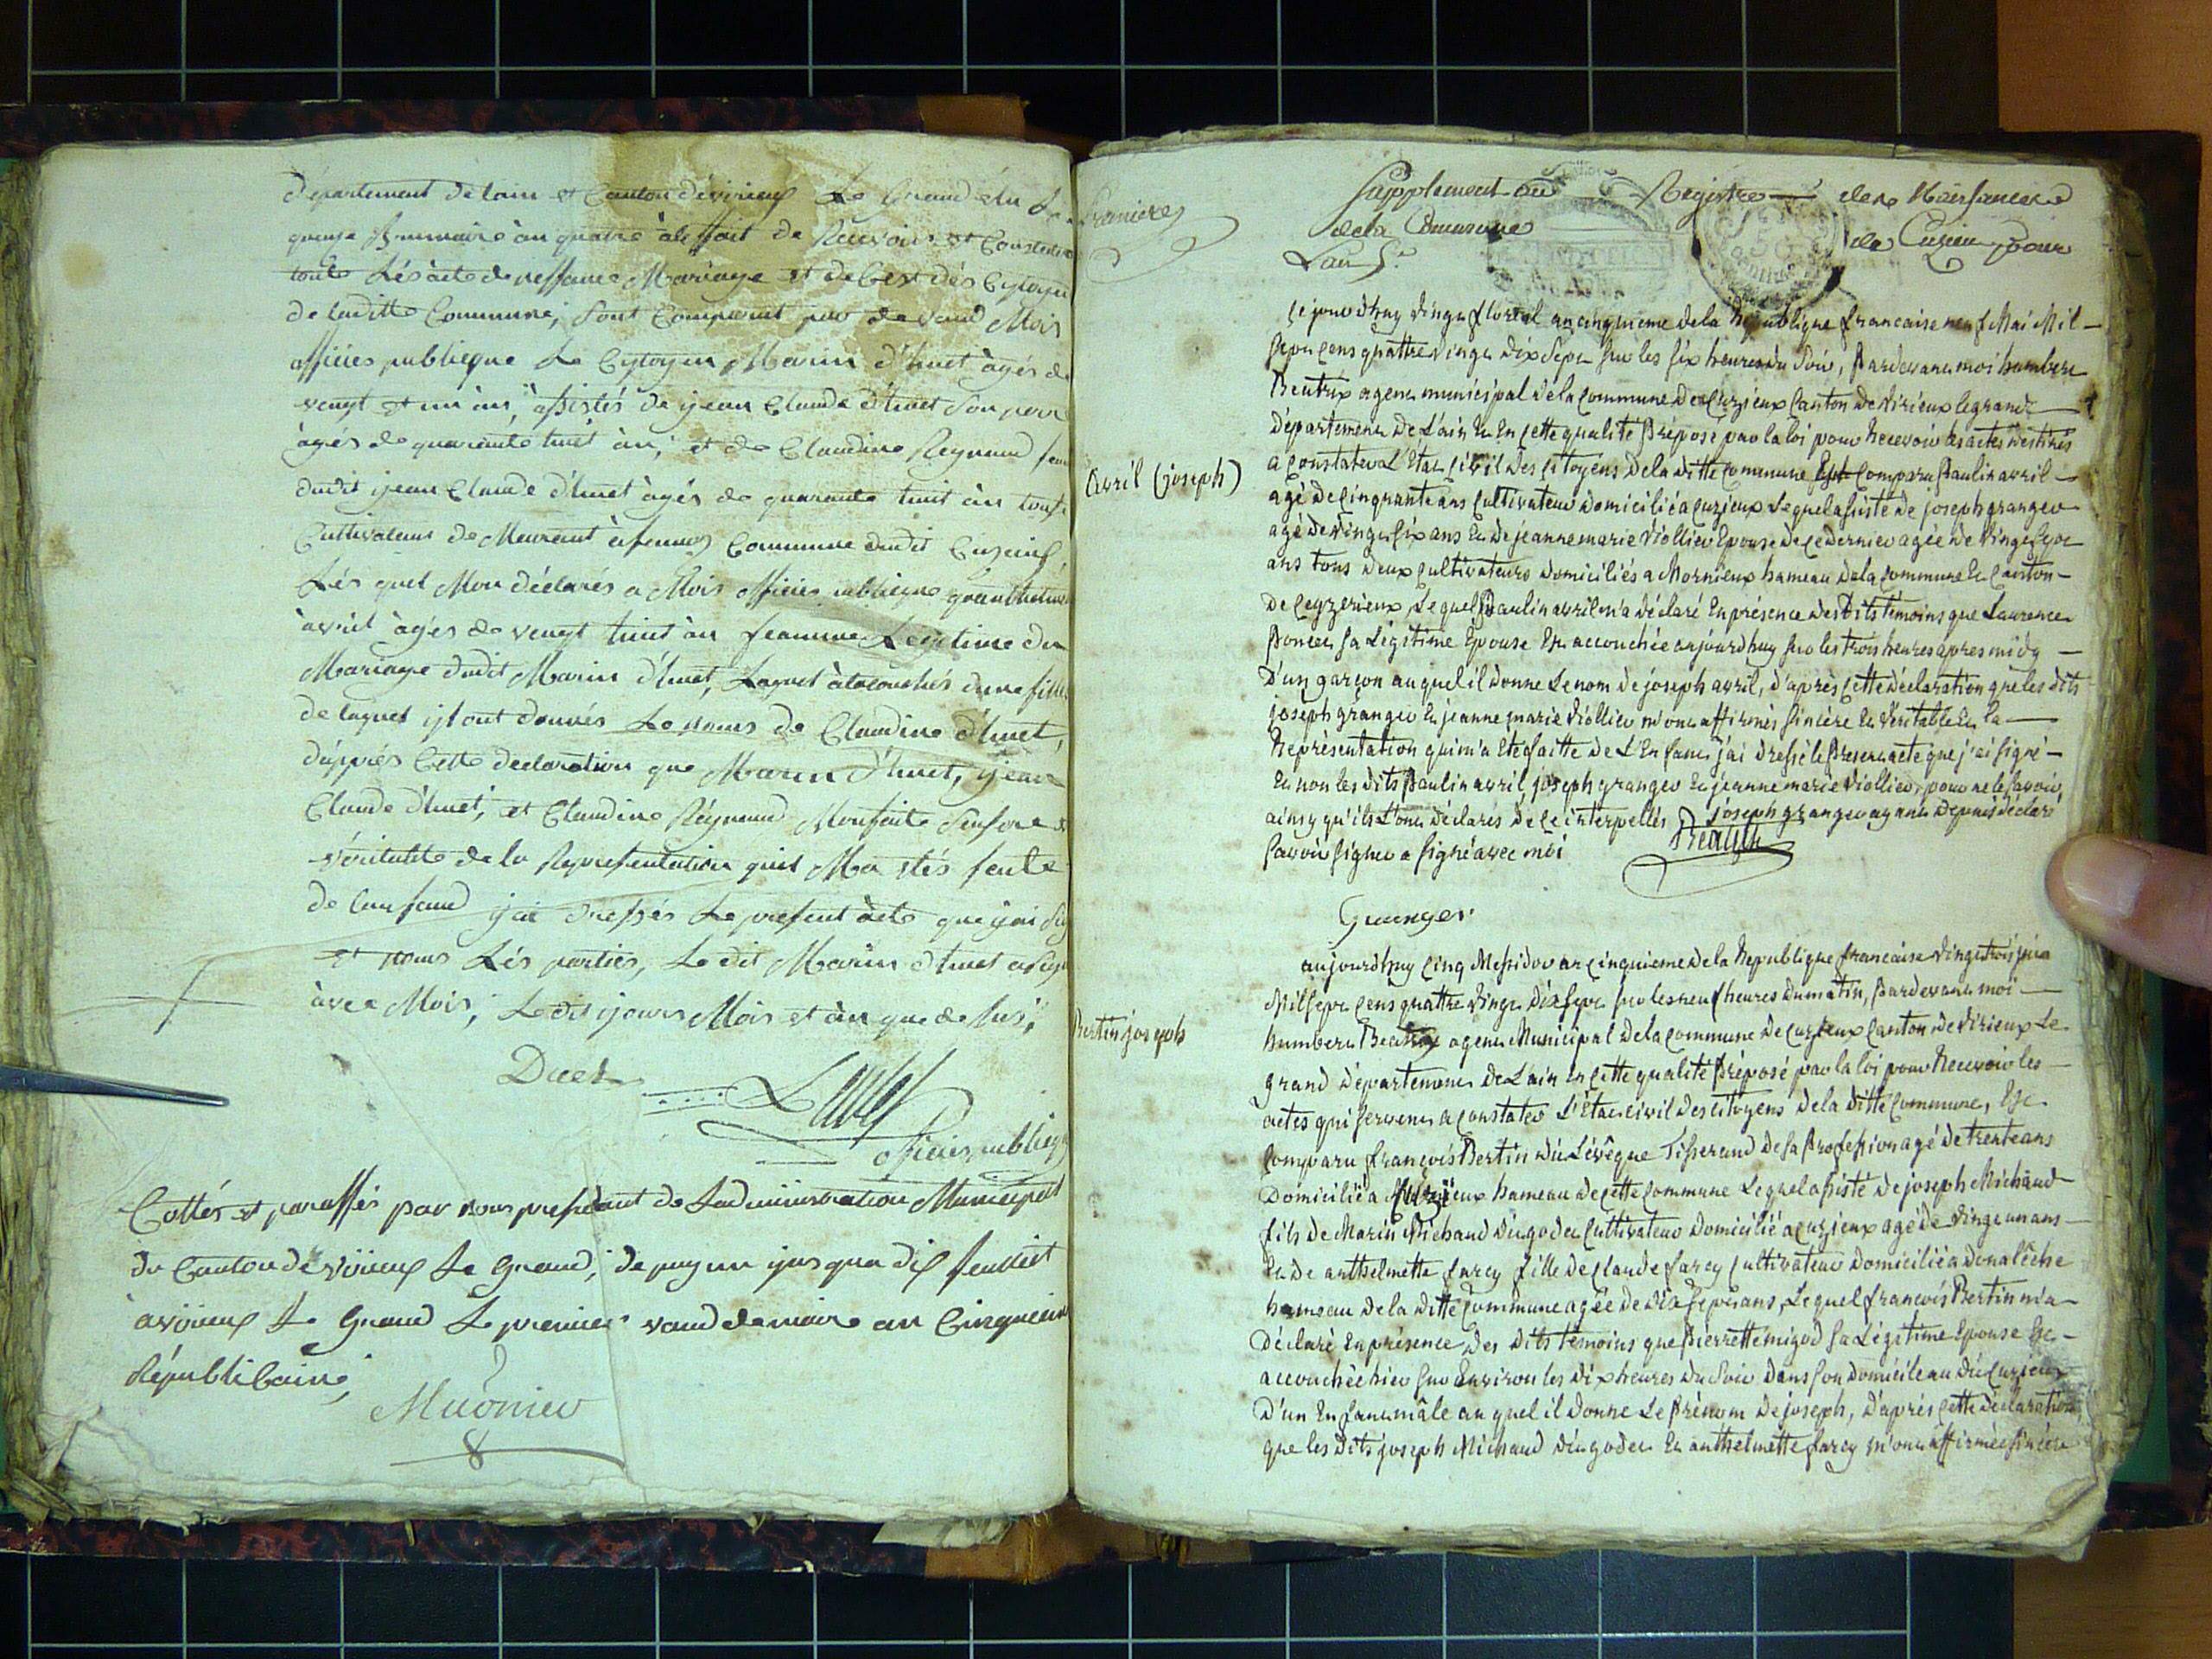 département de lain et Canton dévirieux Le Grand élu Le
quense Brumaire àn quatre àlèffait de Recevoir et Constater
toute Lés àcte de nessance Mariage et de Cest dés Cytoyen
de laditte Commune, sont Comparut par de vand Mois
officiés publicque Le Cytoyen Marin d'huet àgés de
vengt et un àn, àssistés de ijean Claude d'huet Son pere
àgés de quarente huit àn, et de Claudine Reynaud fem
dudit ijean Claude d'huet àgés de quarante huit àn tousts
Cultivateur de Meurant àfennes Commune dudit Cuzieux
Lés quel Mon déclarés a Mois officiés publicque quanthelme
àvril àgés de vengt huit àn feamme Legitime du
Mariage dudit Marin d'huet, Laquel àtacouchés dune fille
de laquel ijl ont donnés Le noms de Claudine d'huet,
dàpprés Cette declaration que Marin d'huet, ijean
Claude d'huet, et Claudine Réynaud Monfaite Sensere et
véritable de la Representation quit Ma étés faite
de Lenfand ijai dressés Le present àcte que ijai Sig
et nous Lés parties, Le dit Marin d'huet a signé
àvec Mois, Le dit ijours Mois et àn que de sus,
Duet
officiés publicque
Cottés et paraffés par nous president de Ladministration Municipal
du Canton de virieux Le Grand, de puy un ijus qua dix feuliet
àvirieux Le Grand Le premier vand demiaire an Cinquieme
Républicaine,
Mugnier
Supplement au Registre des Naissances
dela Commune de Cuzieu pour
Lan 5e
avril (joseph)
Cejourdhuy vingt floréal an cinquieme dela République francaise neuf Mai Mil
sept cens quattre vingt dix sept sur les six heures du soir, Pardevant moi humbert
Beatrix agent municipal de la commune de Cuzieux Canton de Virieux legrand
département de L'ain Et En cette qualité Préposé par la loi pour Recevoir les actes destinés
a constater L'état civil des citoyens dela ditte commune Est Comparu Paulin avril
agé de cinquante ans Cultivateur domicilié a cuzieux Lequel assisté de joseph granger
agé de vingt six ans Et de jeanne marie viollier Epouse de ce dernier agée de vingt sept
ans tous deux cultivateurs domiciliés a Mornieux hameau dela commune Et Canton
de Ceyzerieux, Lequel Paulin avril m'a déclaré En présence desdits témoins que Laurence
Poncet sa Légitime Epouse Est accouchée aujourdhuy sur les trois heures apres midy
D'un garçon auquel il donne Le nom de joseph avril, d'après cette déclaration que les dits
joseph granger Et jeanne marie viollier m'ont affirmés sincère Et véritable Et la
Représentation qui m'a Eté faitte de L'Enfant j'ai dressé le Present acte que j'ai signé
Et non les dits Paulin avril joseph granger Et jeanne marie viollier, pour ne le savoir
ainsy qu'ils L'ont déclarés de ce interpellés joseph granger ayant depuis déclaré
savoir signer a signé avec moi Beatrix
Granger
Bertin joseph
aujourdhuy cinq Messidor an cinquieme dela Republique francaise vingt trois juin
Mil sept cens quattre vingt dix sept sur les neuf heures du matin, Pardevant moi
humbert Beatrix agent Municipal de la commune de Cuzieux Canton de virieux Le
grand département de L'ain En cette qualité Préposé par la loi pour Recevoir les
actes qui servent a constater L'état civil des citoyens dela ditte commune, Est
Comparu françois Bertin dit Lévêque Tisserand de sa Profession agé de trente ans
Domicilié a Cuzieux hameau de cette commune Lequel assisté de joseph Michaud
fils de Marin Michaud dit godet Cultivateur domicilié a cuzieux agé de vingt un ans
Et de anthelmette farcy fille de claude farcy cultivateur domicilié a donalêche
hameau dela ditte commune agée de dix sept ans, Lequel françois Bertin m'a
Déclaré En présence des dits témoins que Pierrette migod sa Légitime Epouse Est
accouchée hier sur Environ les dix heures du soir dans son domicile au dit Cuzieux
D'un Enfant mâle au quel il donne Le Prénom de joseph, d'après cette déclaration
que les dits joseph Michaud dit godet Et anthelmette farcy m'ont affirmée sincère